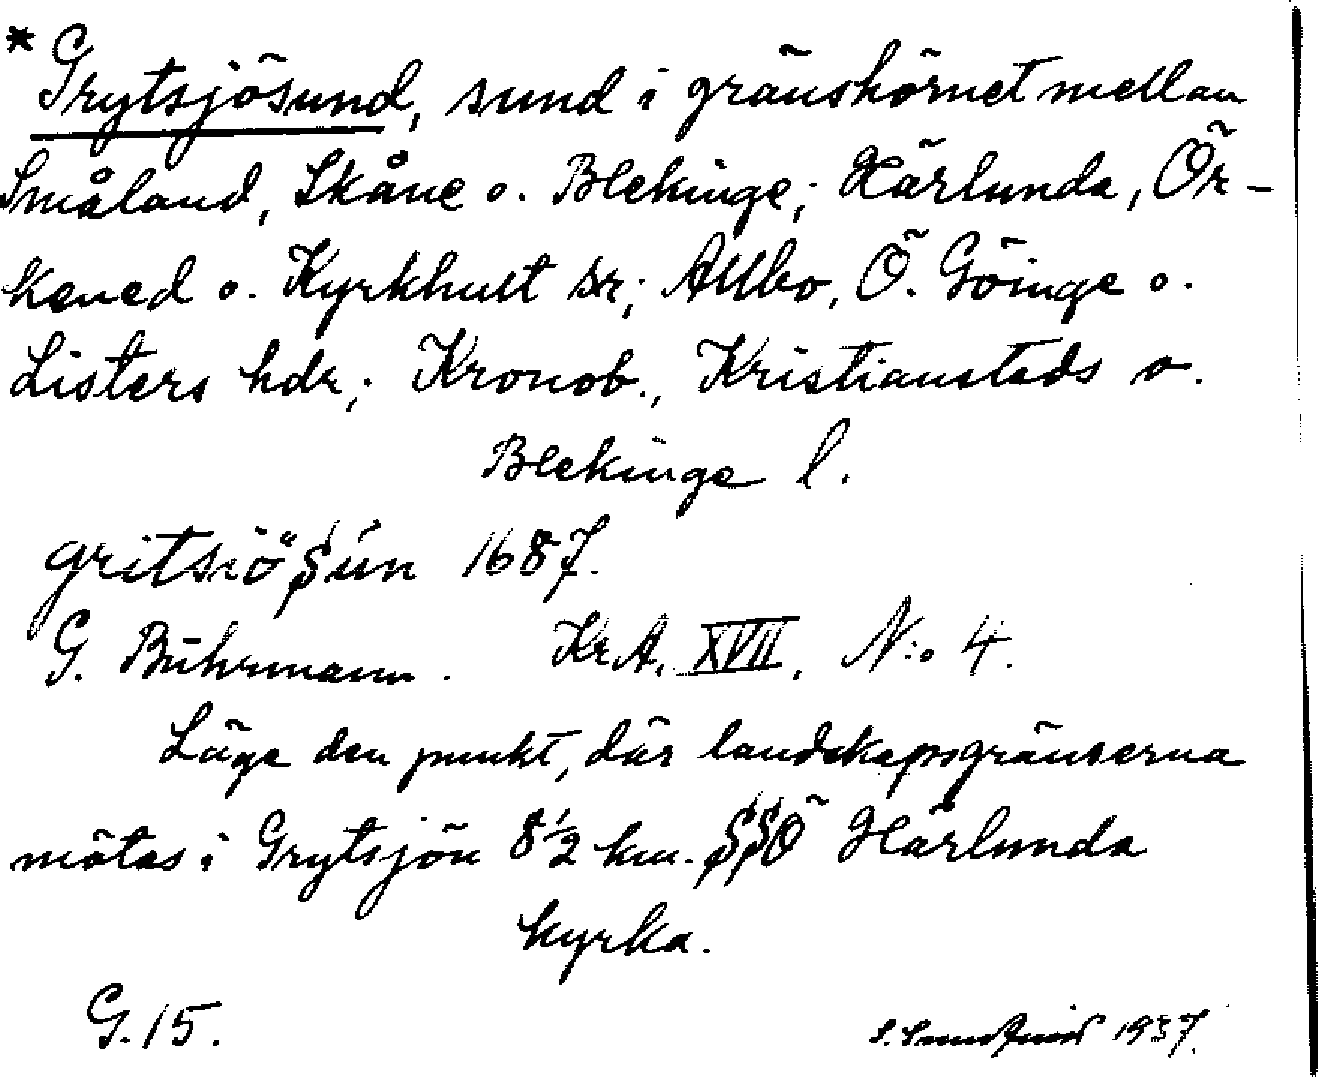 * Grytsjösund, sund i gränshörnet mellan
Småland, Skåne o. Blekinge; Härlunda, Ör-
kened o. Kyrkhult sr; Allbo, Ö. Göinge o.
Listers hdr; Kronob., Kristianstads o.
Blekinge l.
gritsiö Sún 1687.
G. Buhrmann. KrA. XVII. N:o 4.
Läge den punkt, där landskapsgränserna
mötas i Grytsjön 8 1/2 km. SSÖ Härlunda
kyrka.
G. 15.
1937.